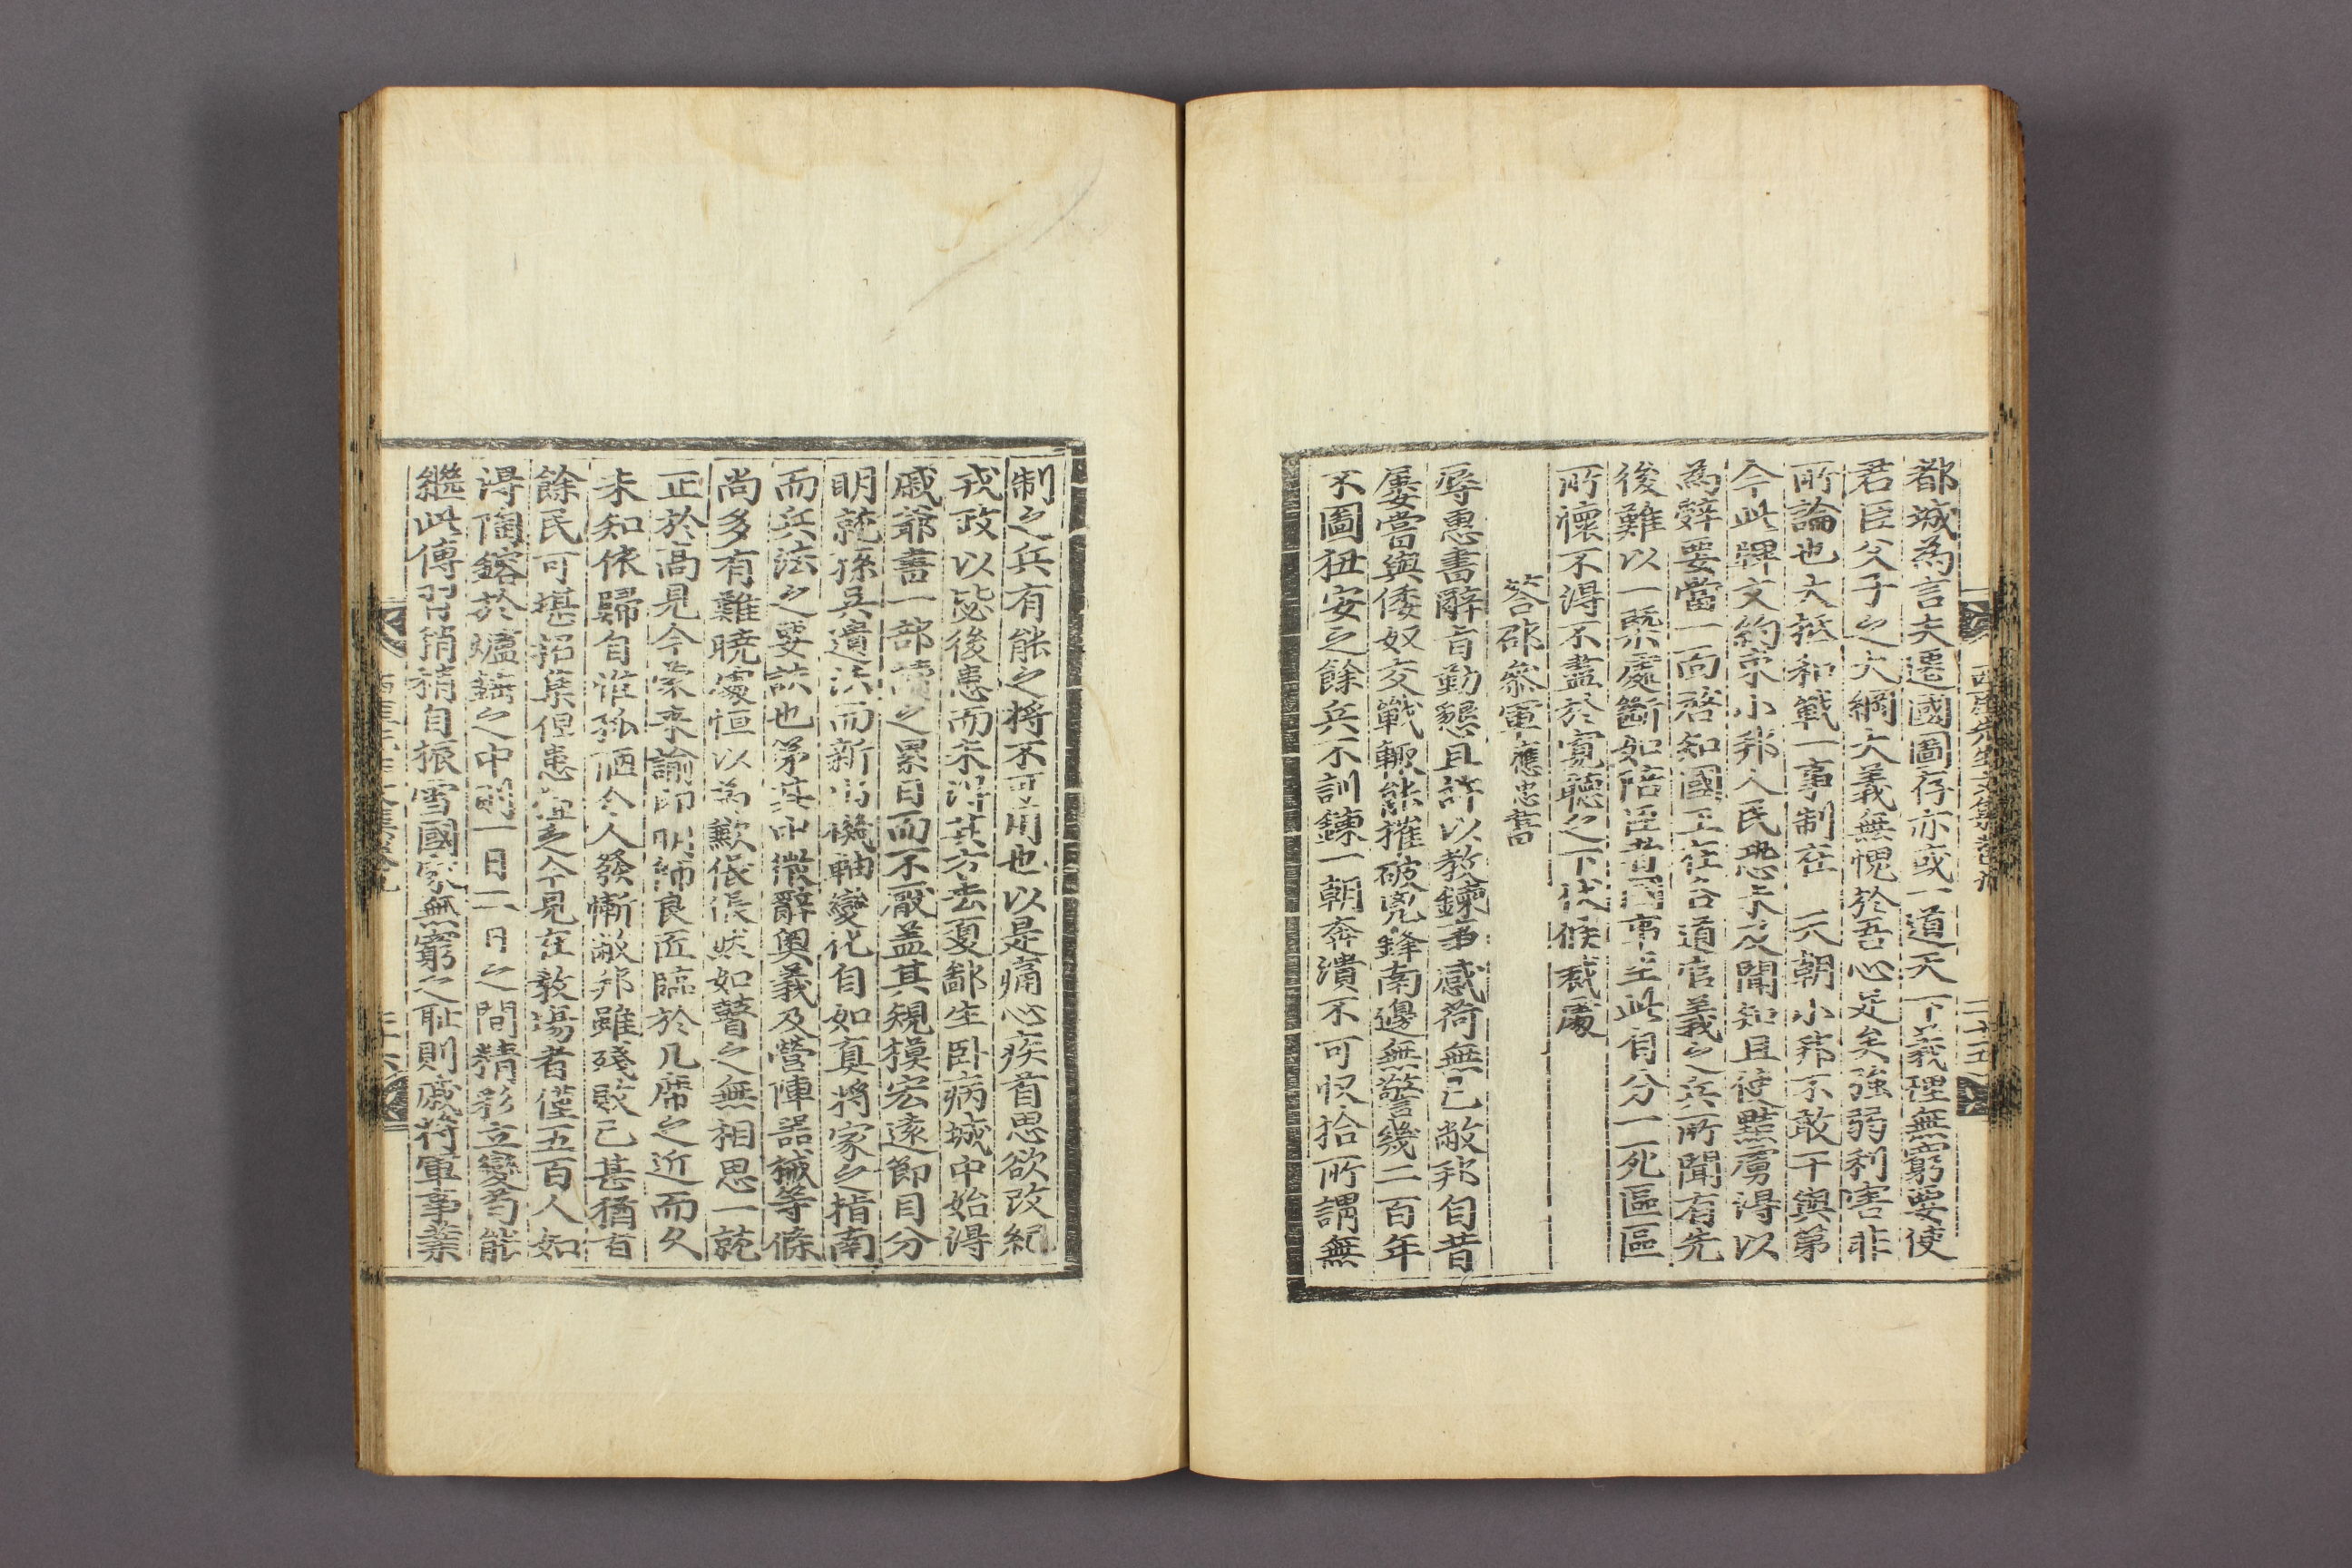 都城為言夫遷國圖存亦或一道天下義理無窮要使
君臣父子之大綱大義無愧於吾心足矣強弱利害非
所論也大抵和戰一事制在 天朝小邦不敢干與第
今此牌文約束小邦人民恐未及聞知且使黠虜得以
為辭要當一面啓知國王在各道官義之兵所聞有先
後難以一槩處斷如陪臣昔國事至此自分一死區區
所懷不得不盡於寬聽之下伏候裁處
答邵叅軍應忠書
辱惠書辭旨勤懇且許以教鍊事感荷無已敝邦自昔
屢嘗與倭奴交戰輙能摧破兇鋒南邊無警幾二百年
不圖狃安之餘兵不訓鍊一朝奔潰不可收拾所謂無
西厓先生文集卷之九
二十五
制之兵有能之將不可用也以是痛心疾首思欲改紀
戎政以毖後患而未得其方去夏鄙生卧病城中始得
戚爺書一部讀之累日而不厭盖其䂓模宏遠節目分
明就孫吳遺法而新出機軸變化自如真將家之指南
而兵法之要訣也第其中微辭奧義及營陣器械等條
尚多有難曉處恒以為歎倀倀然如瞽之無相思一就
正於高見今蒙來諭即明師良匠臨於几席之近而久
未知依歸自准孤陋令人發慚敝邦雖殘敗已甚猶有
餘民可堪招募但患 之今見在教場者僅五百人如
得陶鎔於爐鞴之中則一日二日之間精彩立變苟能
繼此傳習稍稍自振雪國家無窮之耻則戚將軍事業
西厓先生文集卷之九
二十六